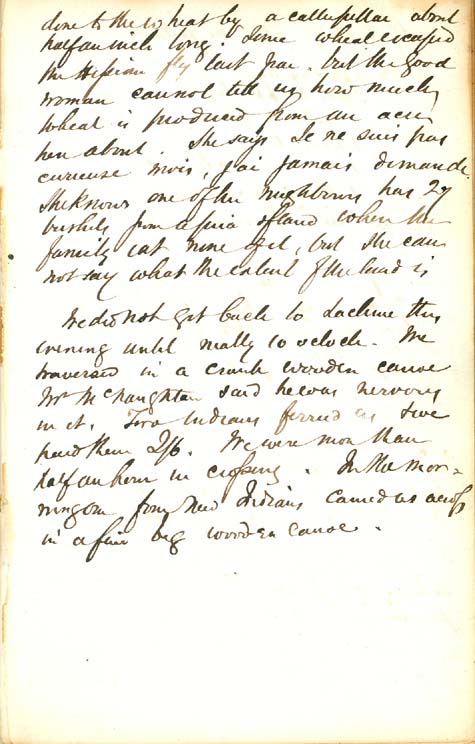 done to the wheat by a catterpillar about
half an inch long. Some wheat escaped
the Hessian fly last year. but the good
woman cannot tell us how much
wheat is produced from an acre
here about. She says Je ne suis pas
curieuse moi, j'ai jamais demandé.
She knows one of the neighbours has 27
bushels from a piece of land when the
family eat none yet, but she can
not say what the extent of the land is
We did not get back to Lachine this
evening until nearly 10 oclock. We
traversed in a crank wooden canoe
Mr McNaughtan said he was nervous
in it. Two Indians ferried us & we
paid them 2/6. We were more than
half an hour in crossing. In the mor-
ning our Indians carried us across
in a fine big wooden canoe.